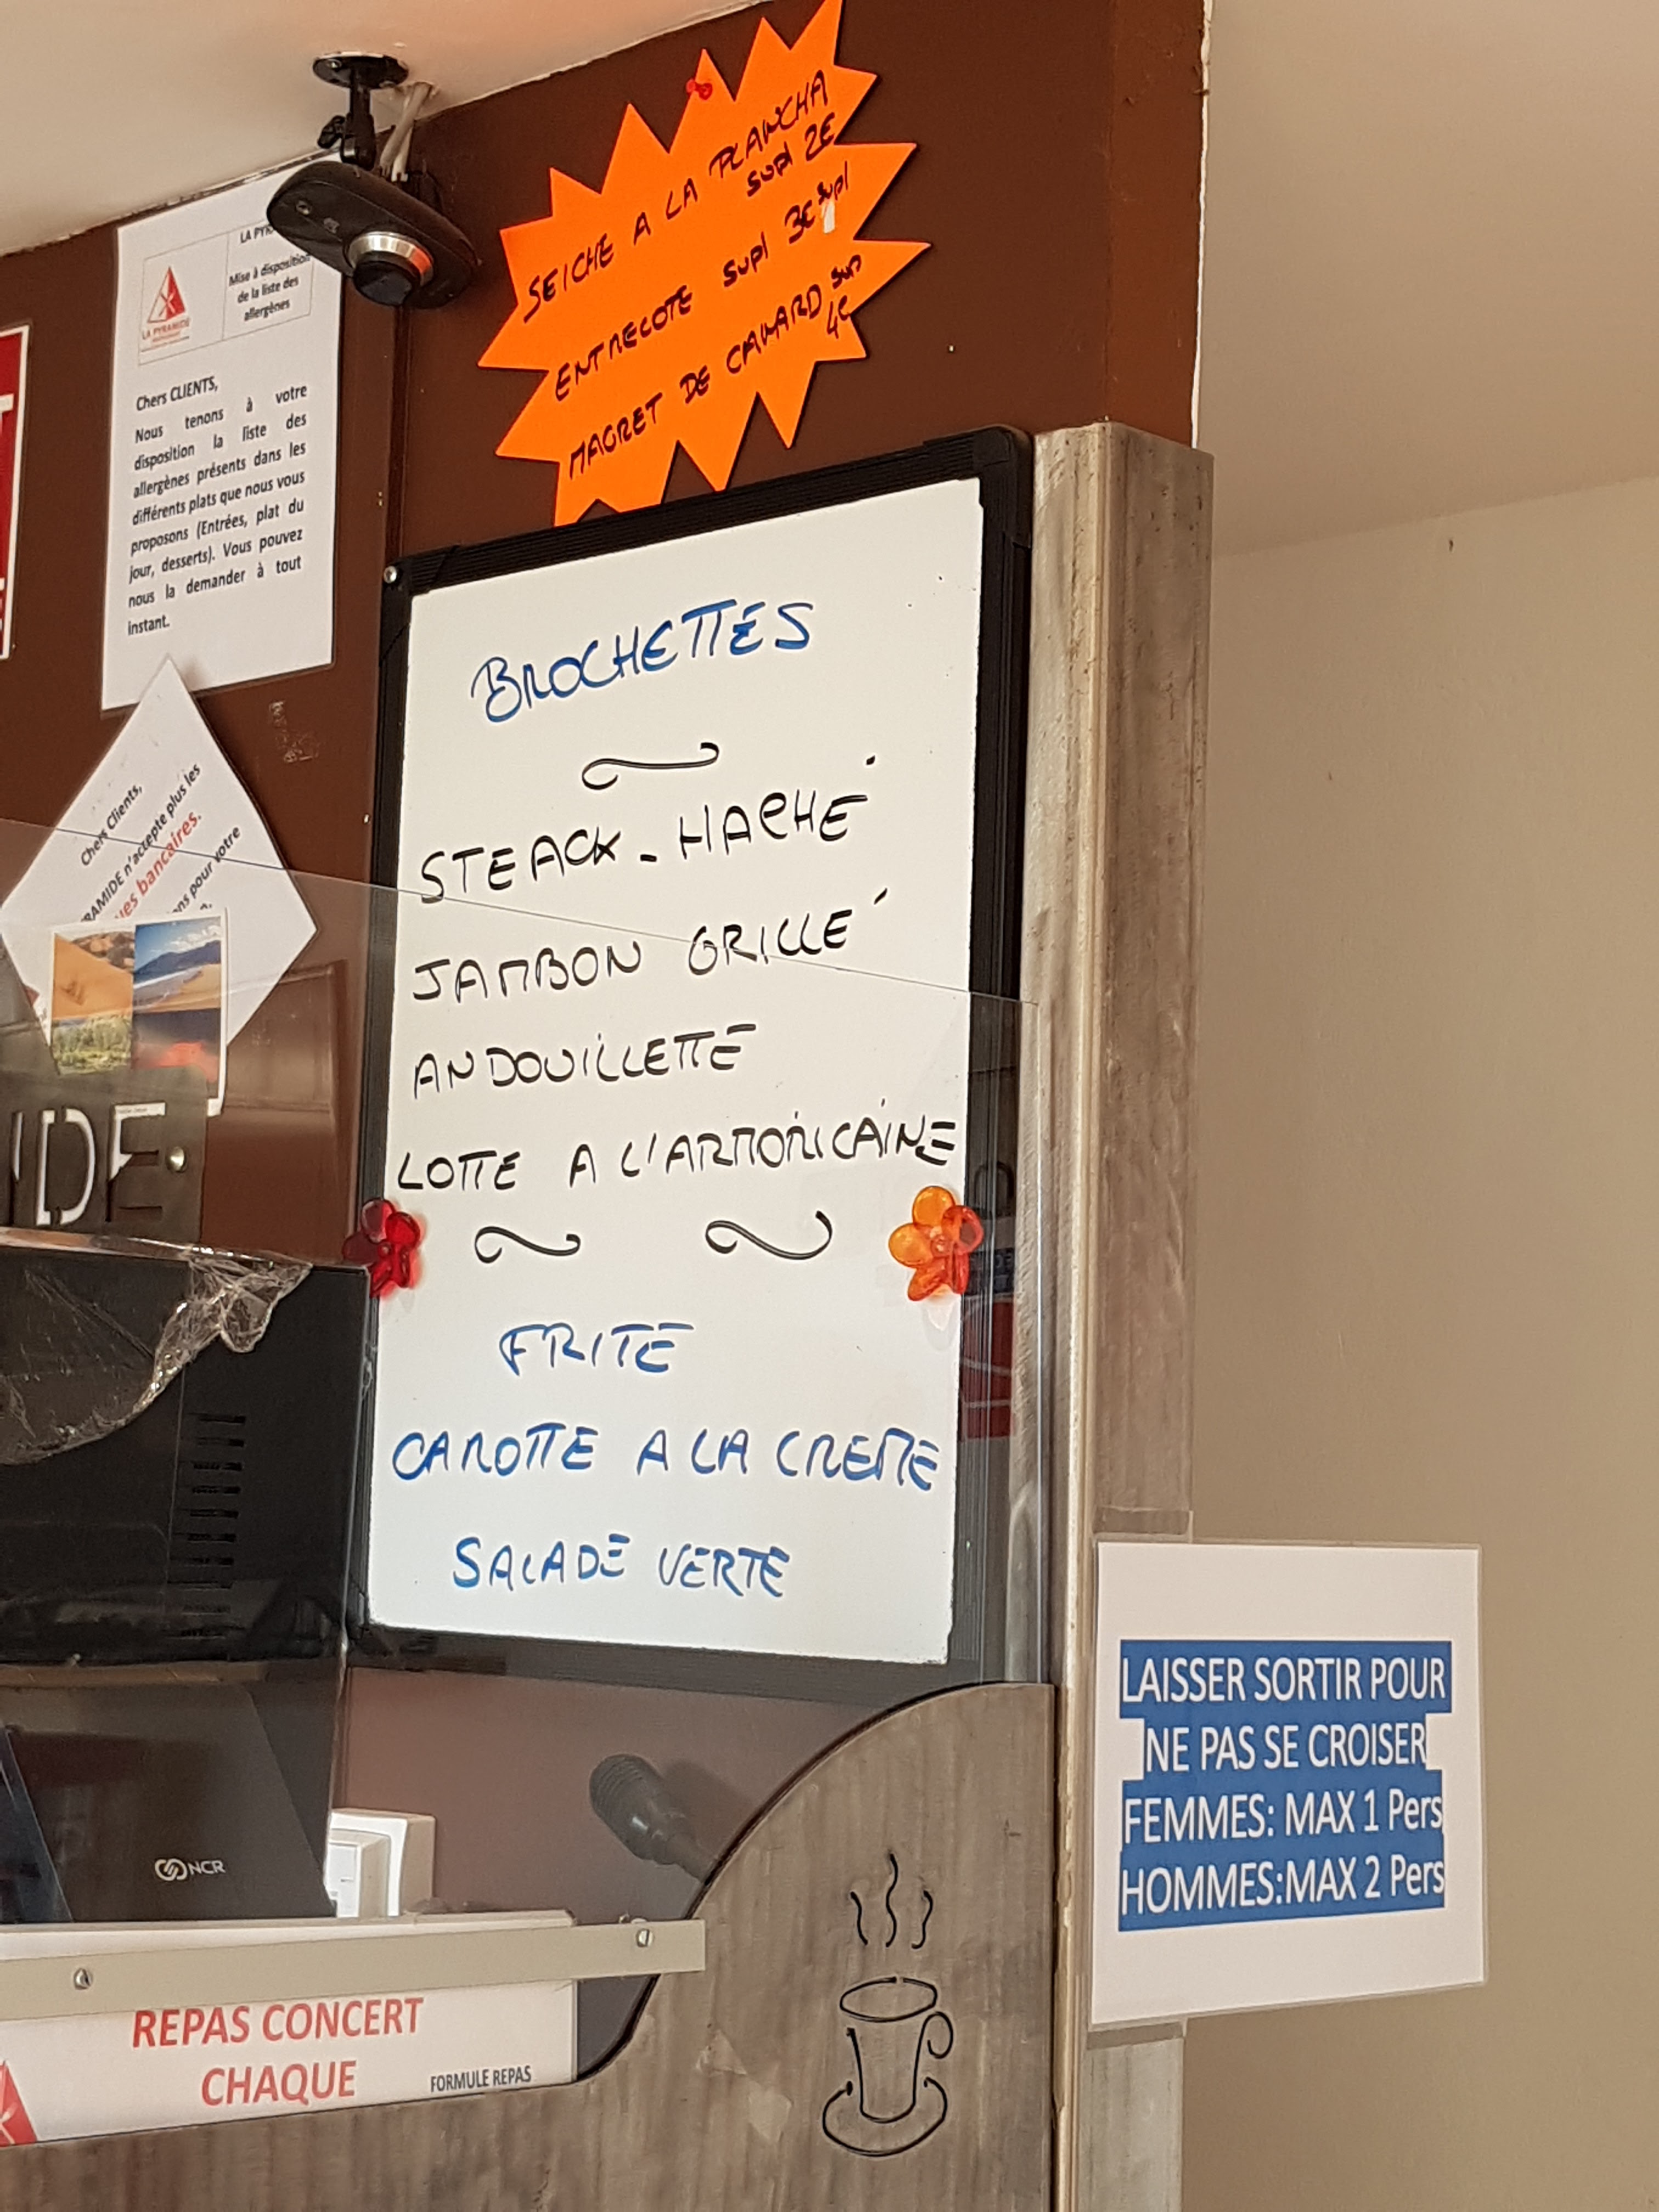 SEICHE A LA PLANCHA
supl 2E
ENTRECOTE supl 3E supl
MAGRET DE CANARD sup
4E
LA PYRAMIDE
Mise à disposition
de la liste des
allergènes
Chers CLIENTS,
Nous tenons à votre
disposition la liste des
allergènes présents dans les
différents plats que nous vous
proposons (Entrées, plat du
jour, desserts). Vous pouvez
nous la demander à tout
instant.
BROCHETTES
STEACK-HACHÉ
JAMBON GRILLÉ
ANDOUILLETTE
LOTTE A L'ARMORICAINE
FRITE
CAROTTE A LA CREME
SALADE VERTE
Chers Clients,
RAMIDE n'accepte plus les
ues bancaires.
ns pour votre
IDE
NCR
LAISSER SORTIR POUR
NE PAS SE CROISER
FEMMES: MAX 1 Pers
HOMMES:MAX 2 Pers
REPAS CONCERT
CHAQUE
FORMULE REPAS